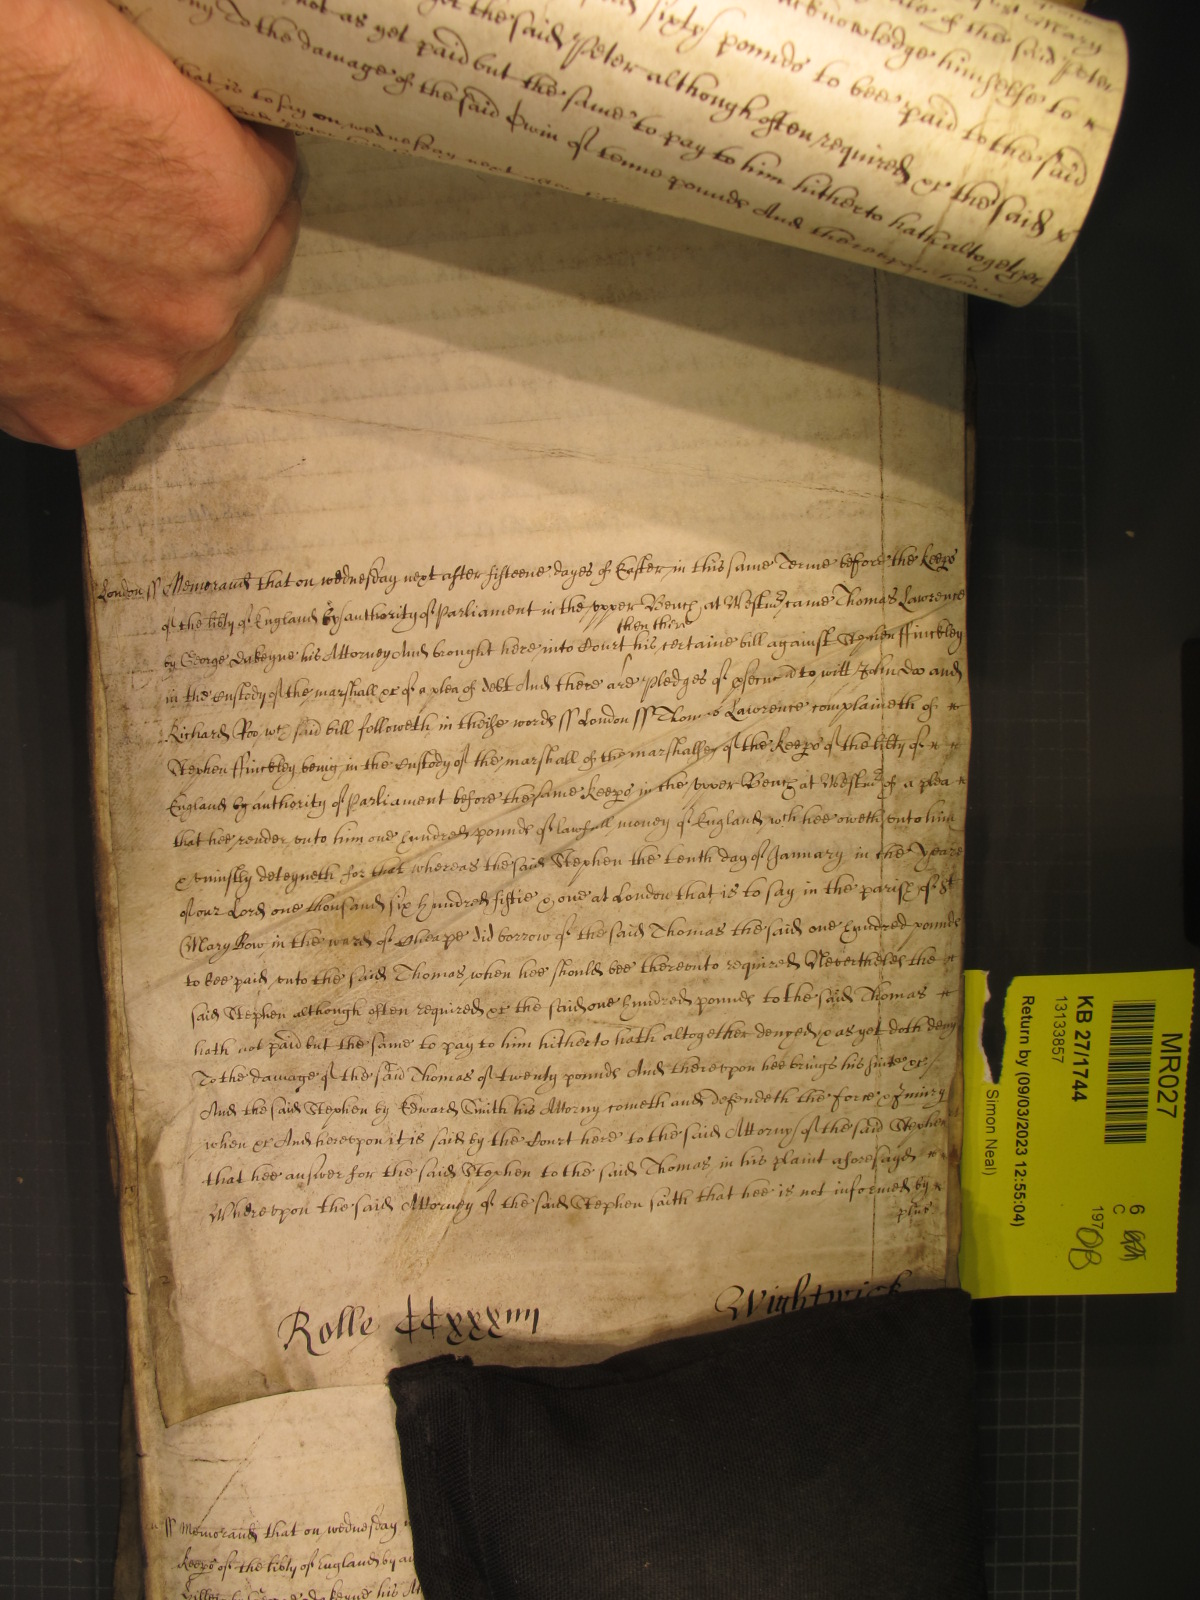 Mary
of the said Peter
acknowledge himselfe to
sixty pounds to bee paid to the said
the said Peter although often required &c the said
not as yet paid but the same to pay to him hitherto hath altogether
to the damage of the said Edwin of tenne pounds And thereupon
that is to say on wednesday next after
London ss Memorand that on wednesday next after fifteene dayes of Easter in this same Terme before the keeps
of the libty of England by authority of Parliament in the upper Bench at Westmr came Thomas Lawrence
then there
by George Dakeyne his Attorney And brought here into Court his certaine bill against Stephen ffinckley
in the Custody of the marshall &c of a plea of debt And there are pledges of to witt John Doo and
Richard Roo wch said bill followeth in theise words ss London ss Thomas Lawrence complaineth of
Stephen ffinckley being in the Custody of the marshall of the marshalsey of the keeps of the libty of
England by authority of Parliament before the same keeps in the upper Bench at Westmr of a plea
that hee render unto him one hundred pounds of lawfull money of England wch hee oweth unto him
& uniustly deteyneth for that whereas the said Stephen the tenth day of January in the Yeare
of our Lord one thousand six hundred fiftie & one at London that is to say in the parish of St
Mary Bow in the ward of Cheape did borrow of the said Thomas the said one hundred pounds
to bee paid unto the said Thomas when hee should bee thereunto required Neverthelesse the
said Stephen although often required &c the said one hundred pounds to the said Thomas
hath not paid but the same to pay to him hitherto hath altogether denyed & as yet doth deny
To the damage of the said Thomas of twenty pounds And thereupon hee brings his suite &c
And the said Stephen by Edward Smith his Attorny cometh and defendeth the force & iniury
when &c And hereupon it is said by the Court here to the said Attorny of the said Stephen
that hee answer for the said Stephen to the said Thomas in his plaint aforesayd
Whereupon the said Attorney of the said Stephen saith that hee is not informed by
Rolle CCxxxiiii
Wightwick
ss Memorand that on wednesday
keeps of the libty of England by au
Dakeyne his At
MR027
KB 27/1744
13133857
Return by (09/03/2023 12:55:04)
Simon Neal)
6
C
197